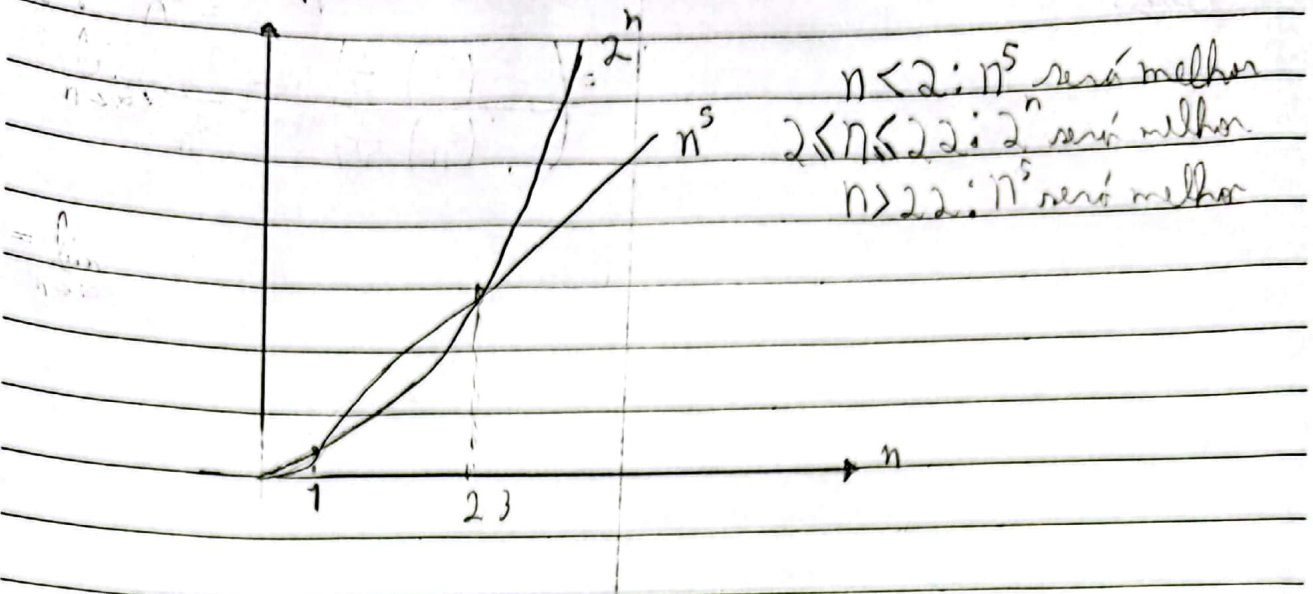 2ⁿ
n⁵
n<2: n⁵ será melhor
2≤n≤22: 2ⁿ será melhor
n>22: n⁵ será melhor
n
1
2 3